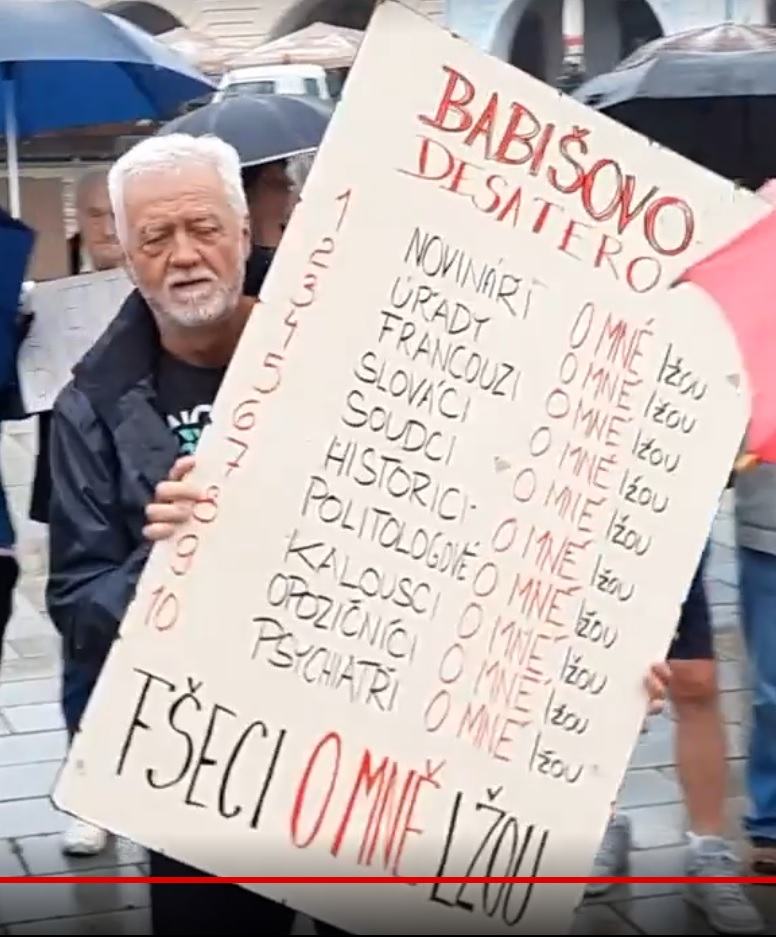 BABIŠOVO
DESATERO
1 NOVINÁŘI O MNĚ lžou
2 ÚŘADY O MNĚ lžou
3 FRANCOUZI O MNĚ lžou
4 SLOVÁCI O MNĚ lžou
5 SOUDCI O MNĚ lžou
6 HISTORICI O MNĚ lžou
7 POLITOLOGOVÉ O MNĚ lžou
8 KALOUSCI O MNĚ lžou
9 OPOZIČNÍCI O MNĚ lžou
10 PSYCHIATŘI O MNĚ lžou
FŠECI O MNĚ LŽOU